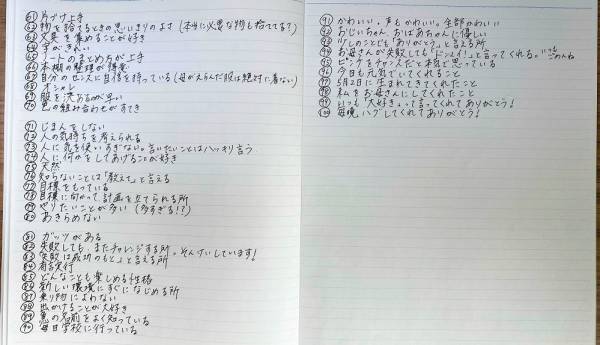 61 片づけ上手
62 物を捨てるときの思いきりのよさ(本当に必要な物も捨ててる?)
63 文具を集めることが好き
64 字がきれい
65 ノートのまとめ方が上手
66 本棚の整理が得意
67 自分のセンスに自信を持っている(母が選んだ服は絶対に着ない)
68 オシャレ
69 服を決めるのが早い
70 色の組み合わせがすてき
71 じまんをしない
72 人の気持ちを考えられる
73 人に気を使いすぎない。言いたいことはハッキリ言う
74 人に何かをしてあげることが好き
75 天然
76 知らないことは「教えて」と言える
77 目標をもっている
78 目標に向かって計画を立てられる所
79 やりたいことが多い(多すぎる!?)
80 あきらめない
81 ガッツがある
82 失敗しても、またチャレンジする所
83 「失敗は成功のもと」と言える所。そんけいしています!
84 有言実行
85 どんなことも楽しめる性格
86 新しい環境にすぐになじめる所
87 乗り物によわない
88 出かけることが大好き
89 魚の名前をよく知っている
90 毎日学校に行っている
91 かわいい。声もかわいい。全部かわいい
92 おじいちゃん、おばあちゃんに優しい
93 少しのことでも「ありがとう」と言える所
94 お母さんが失敗しても「ドンマイ!」と言ってくれる。いつもごめんね
95 ピンチをチャンスだと本気で思っている
96 今日も元気でいてくれること
97 5月2日に生まれてきてくれたこと
98 私をお母さんにしてくれたこと
99 いつも「大好き。」って言ってくれてありがとう!
100 毎晩、ハグしてくれてありがとう!